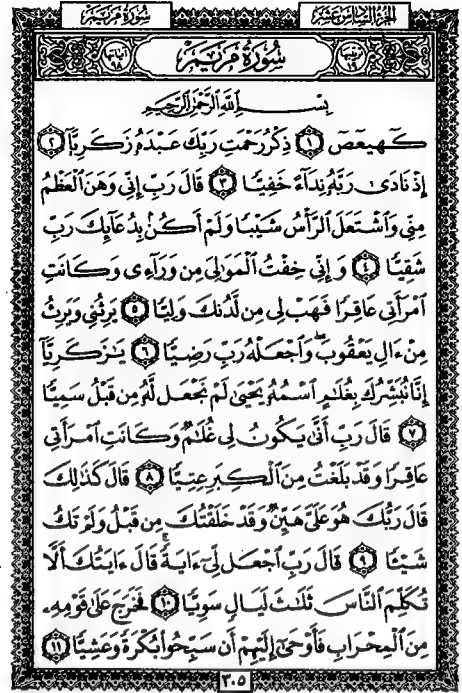 سُورَةُ مَرْيَم الجُزءُ السَّادِسُ عَشَر
آيَاتُهَا ٩٨ سُورَةُ مَرْيَم تَرتِيبُهَا ١٩
بِسْمِ ٱللَّهِ ٱلرَّحْمَٰنِ ٱلرَّحِيمِ
كٓهيعٓصٓ ١ ذِكْرُ رَحْمَتِ رَبِّكَ عَبْدَهُۥ زَكَرِيَّآ ٢
إِذْ نَادَىٰ رَبَّهُۥ نِدَآءً خَفِيًّا ٣ قَالَ رَبِّ إِنِّى وَهَنَ ٱلْعَظْمُ
مِنِّى وَٱشْتَعَلَ ٱلرَّأْسُ شَيْبًا وَلَمْ أَكُنۢ بِدُعَآئِكَ رَبِّ
شَقِيًّا ٤ وَإِنِّى خِفْتُ ٱلْمَوَٰلِىَ مِن وَرَآءِى وَكَانَتِ
ٱمْرَأَتِى عَاقِرًا فَهَبْ لِى مِن لَّدُنكَ وَلِيًّا ٥ يَرِثُنِى وَيَرِثُ
مِنْ ءَالِ يَعْقُوبَ ۖ وَٱجْعَلْهُ رَبِّ رَضِيًّا ٦ يَٰزَكَرِيَّآ
إِنَّا نُبَشِّرُكَ بِغُلَٰمٍ ٱسْمُهُۥ يَحْيَىٰ لَمْ نَجْعَل لَّهُۥ مِن قَبْلُ سَمِيًّا
٧ قَالَ رَبِّ أَنَّىٰ يَكُونُ لِى غُلَٰمٌ وَكَانَتِ ٱمْرَأَتِى
عَاقِرًا وَقَدْ بَلَغْتُ مِنَ ٱلْكِبَرِ عِتِيًّا ٨ قَالَ كَذَٰلِكَ
قَالَ رَبُّكَ هُوَ عَلَىَّ هَيِّنٌ وَقَدْ خَلَقْتُكَ مِن قَبْلُ وَلَمْ تَكُ
شَيْـًٔا ٩ قَالَ رَبِّ ٱجْعَل لِّىٓ ءَايَةً ۚ قَالَ ءَايَتُكَ أَلَّا
تُكَلِّمَ ٱلنَّاسَ ثَلَٰثَ لَيَالٍ سَوِيًّا ١٠ فَخَرَجَ عَلَىٰ قَوْمِهِۦ
مِنَ ٱلْمِحْرَابِ فَأَوْحَىٰٓ إِلَيْهِمْ أَن سَبِّحُوا۟ بُكْرَةً وَعَشِيًّا ١١
٣٠٥